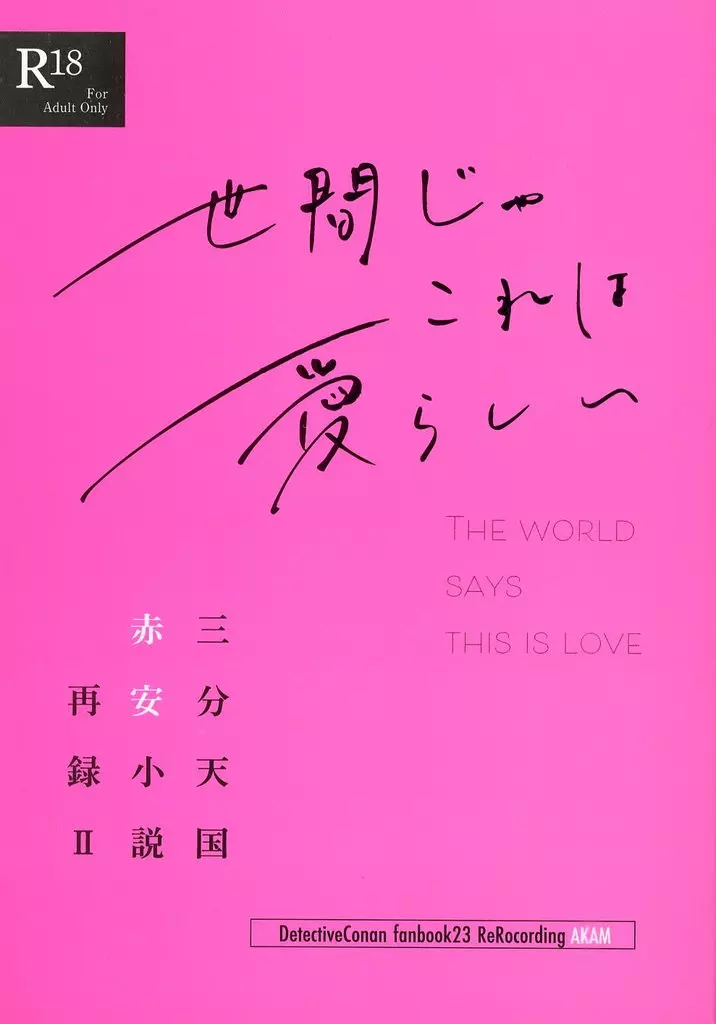 R18
For
Adult Only
世間じゃ
これは
愛らしい
THE WORLD
SAYS
THIS IS LOVE
三分天国
赤安小説
再録Ⅱ
DetectiveConan fanbook23 ReRocording AKAM